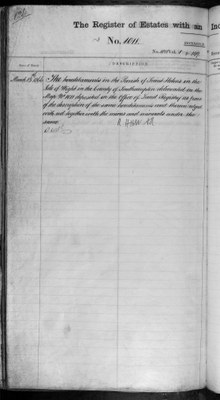 The Register of Estates with an In
No. 1011.
DESCRIPTION
The hereditaments in the Parish of Saint Helens in the
Isle of Wight in the County of Southampton delineated on the
Map No 1011 deposited in the Office of Land Registry as part
of the description of the same hereditaments and therein edged
with red together with the mines and minerals under the
same